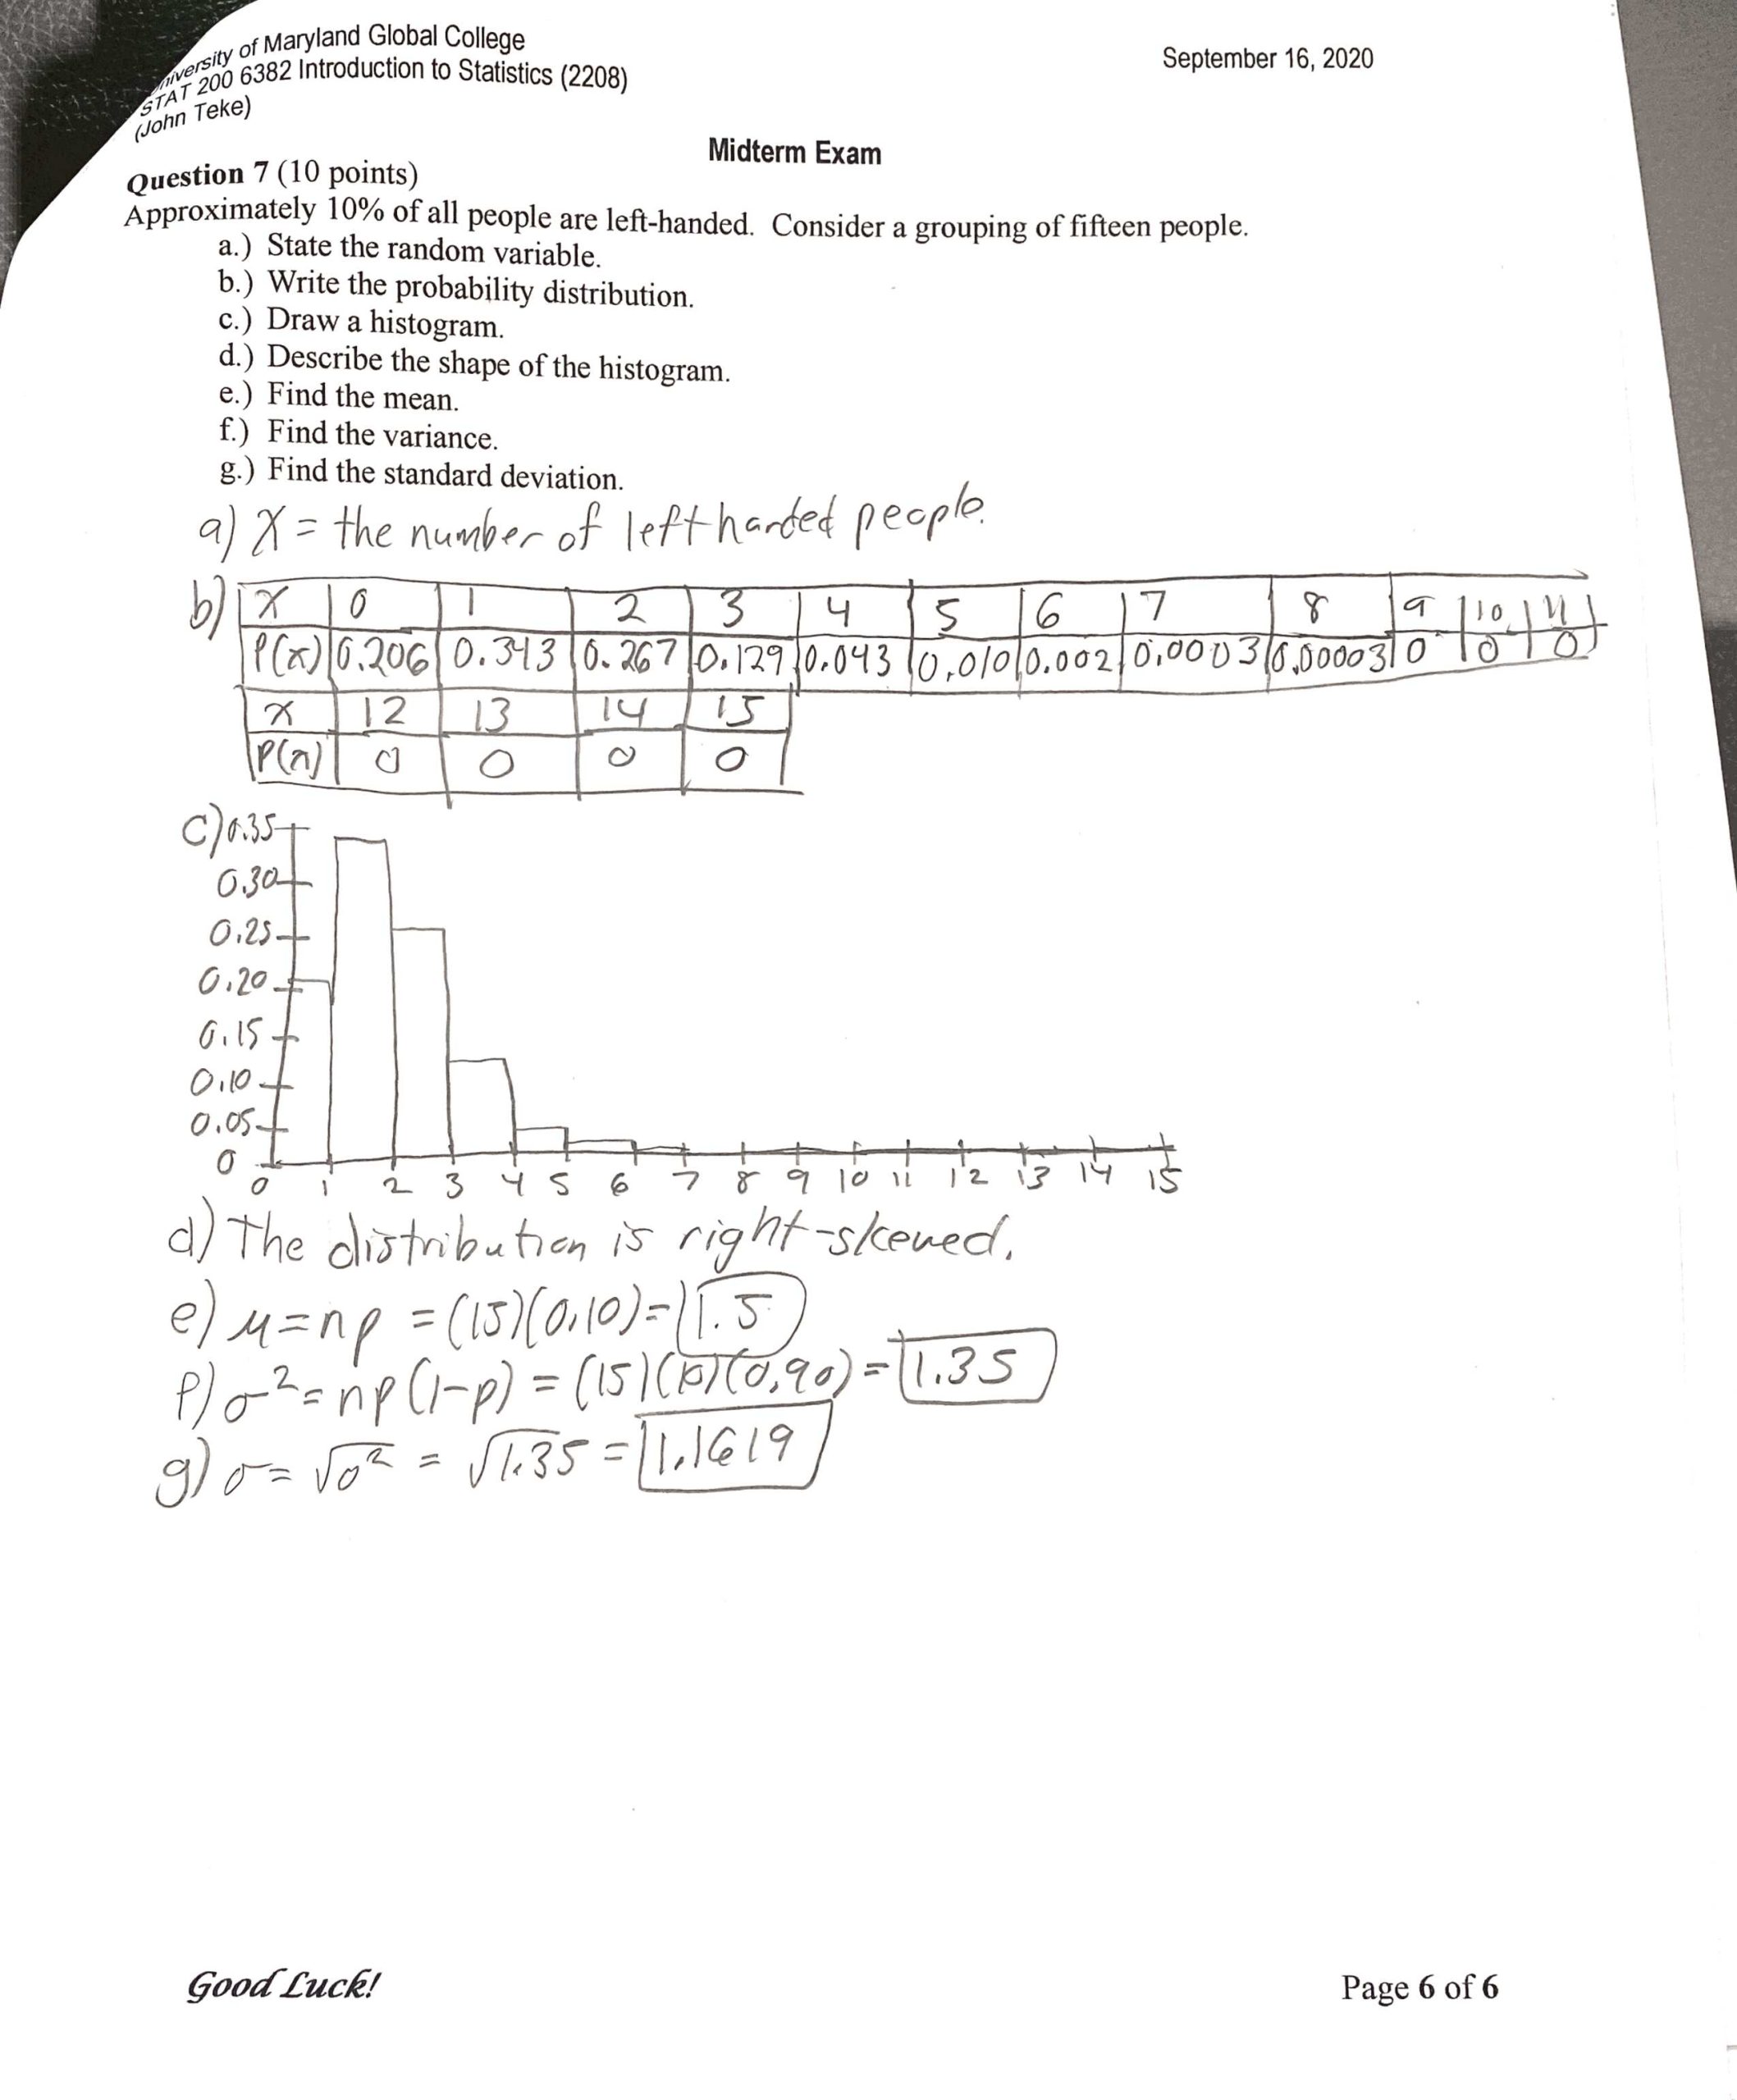 niversity of Maryland Global College
September 16, 2020
STAT 200 6382 Introduction to Statistics (2208)
(John Teke)
Midterm Exam
Question 7 (10 points)
Approximately 10% of all people are left-handed. Consider a grouping of fifteen people.
a.) State the random variable.
b.) Write the probability distribution.
c.) Draw a histogram.
d.) Describe the shape of the histogram.
e.) Find the mean.
f.) Find the variance.
g.) Find the standard deviation.
a) X = the number of left handed people.
b) x 0 1 2 3 4 5 6 7 8 9 10 11
P(x) 0.206 0.343 0.267 0.129 0.043 0.010 0.002 0.0003 0.00003 0 0 0
x 12 13 14 15
P(x) 0 0 0 0
c) 0.35
0.30
0.25
0.20
0.15
0.10
0.05
0
0 1 2 3 4 5 6 7 8 9 10 11 12 13 14 15
d) The distribution is right-skewed.
e) μ = np = (15)(0.10) = 1.5
f) σ² = np(1-p) = (15)(10)(0.90) = 1.35
g) σ = √σ² = √1.35 = 1.1619
Good Luck!
Page 6 of 6